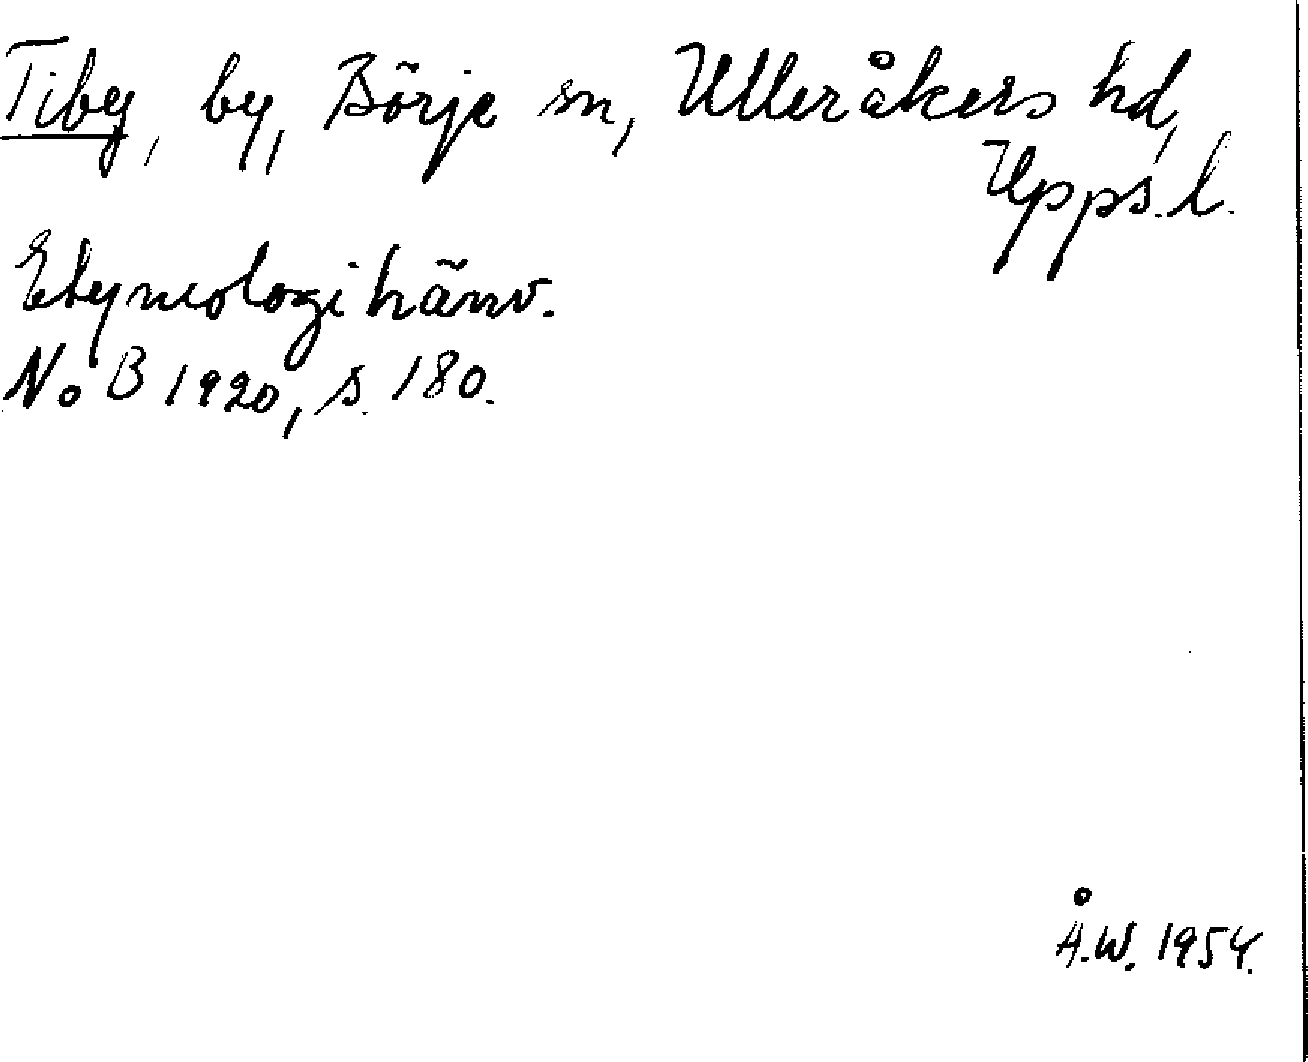 Tiby, by, Börje sn, Ulleråkers hd,
Upps. l.
Etymologihänv.
NoB 1920, s. 180.
Å.W. 1954.